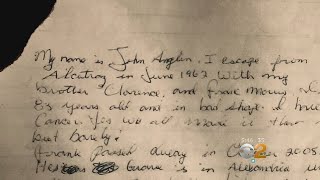 My name is John Anglin, I escape from
Alcatraz in June 1962 With my
brother Clarence, and Frank Morris. I
83 years old and in bad shape. I have
Cancer. Yes we all made it that
but barely!
Frank passed away in 2005
His grave is in Alexandria
2